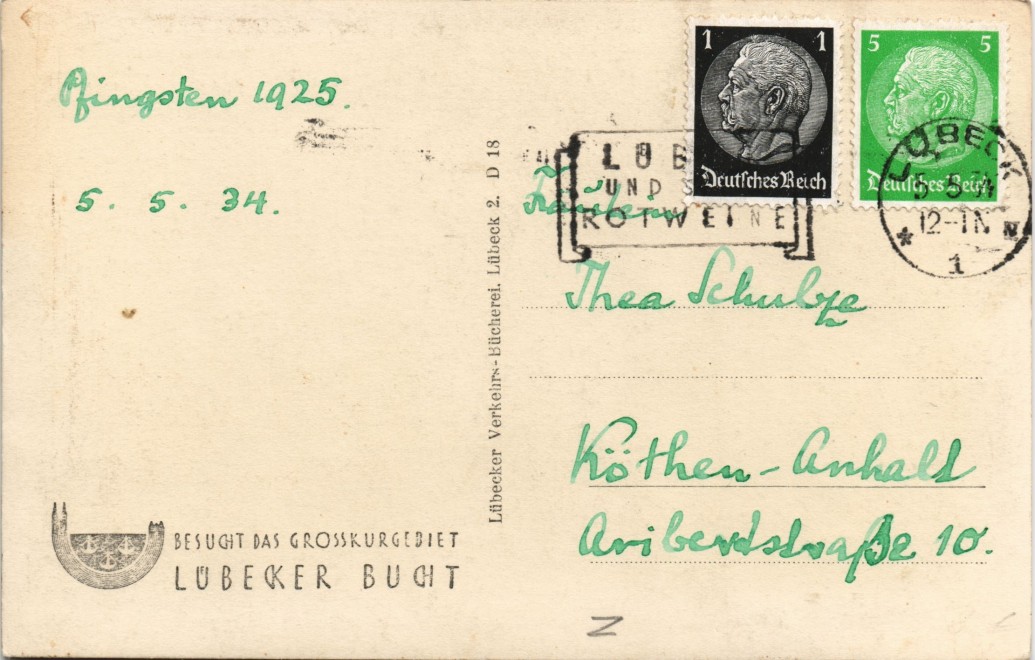 Pfingsten 1925.
5. 5. 34.
BESUCHT DAS GROSSKURGEBIET
LÜBECKER BUCHT
Lübecker Verkehrs-Bücherei. Lübeck 2. D 18
1 1
Deutsches Reich
5 5
Deutsches Reich
LÜB
UND
ROTWEINE
LÜBECK
5.5.34
12-1N
* N
1
Fräulein
Thea Schulze
Köthen-Anhalt
Aribertstraße 10.
N